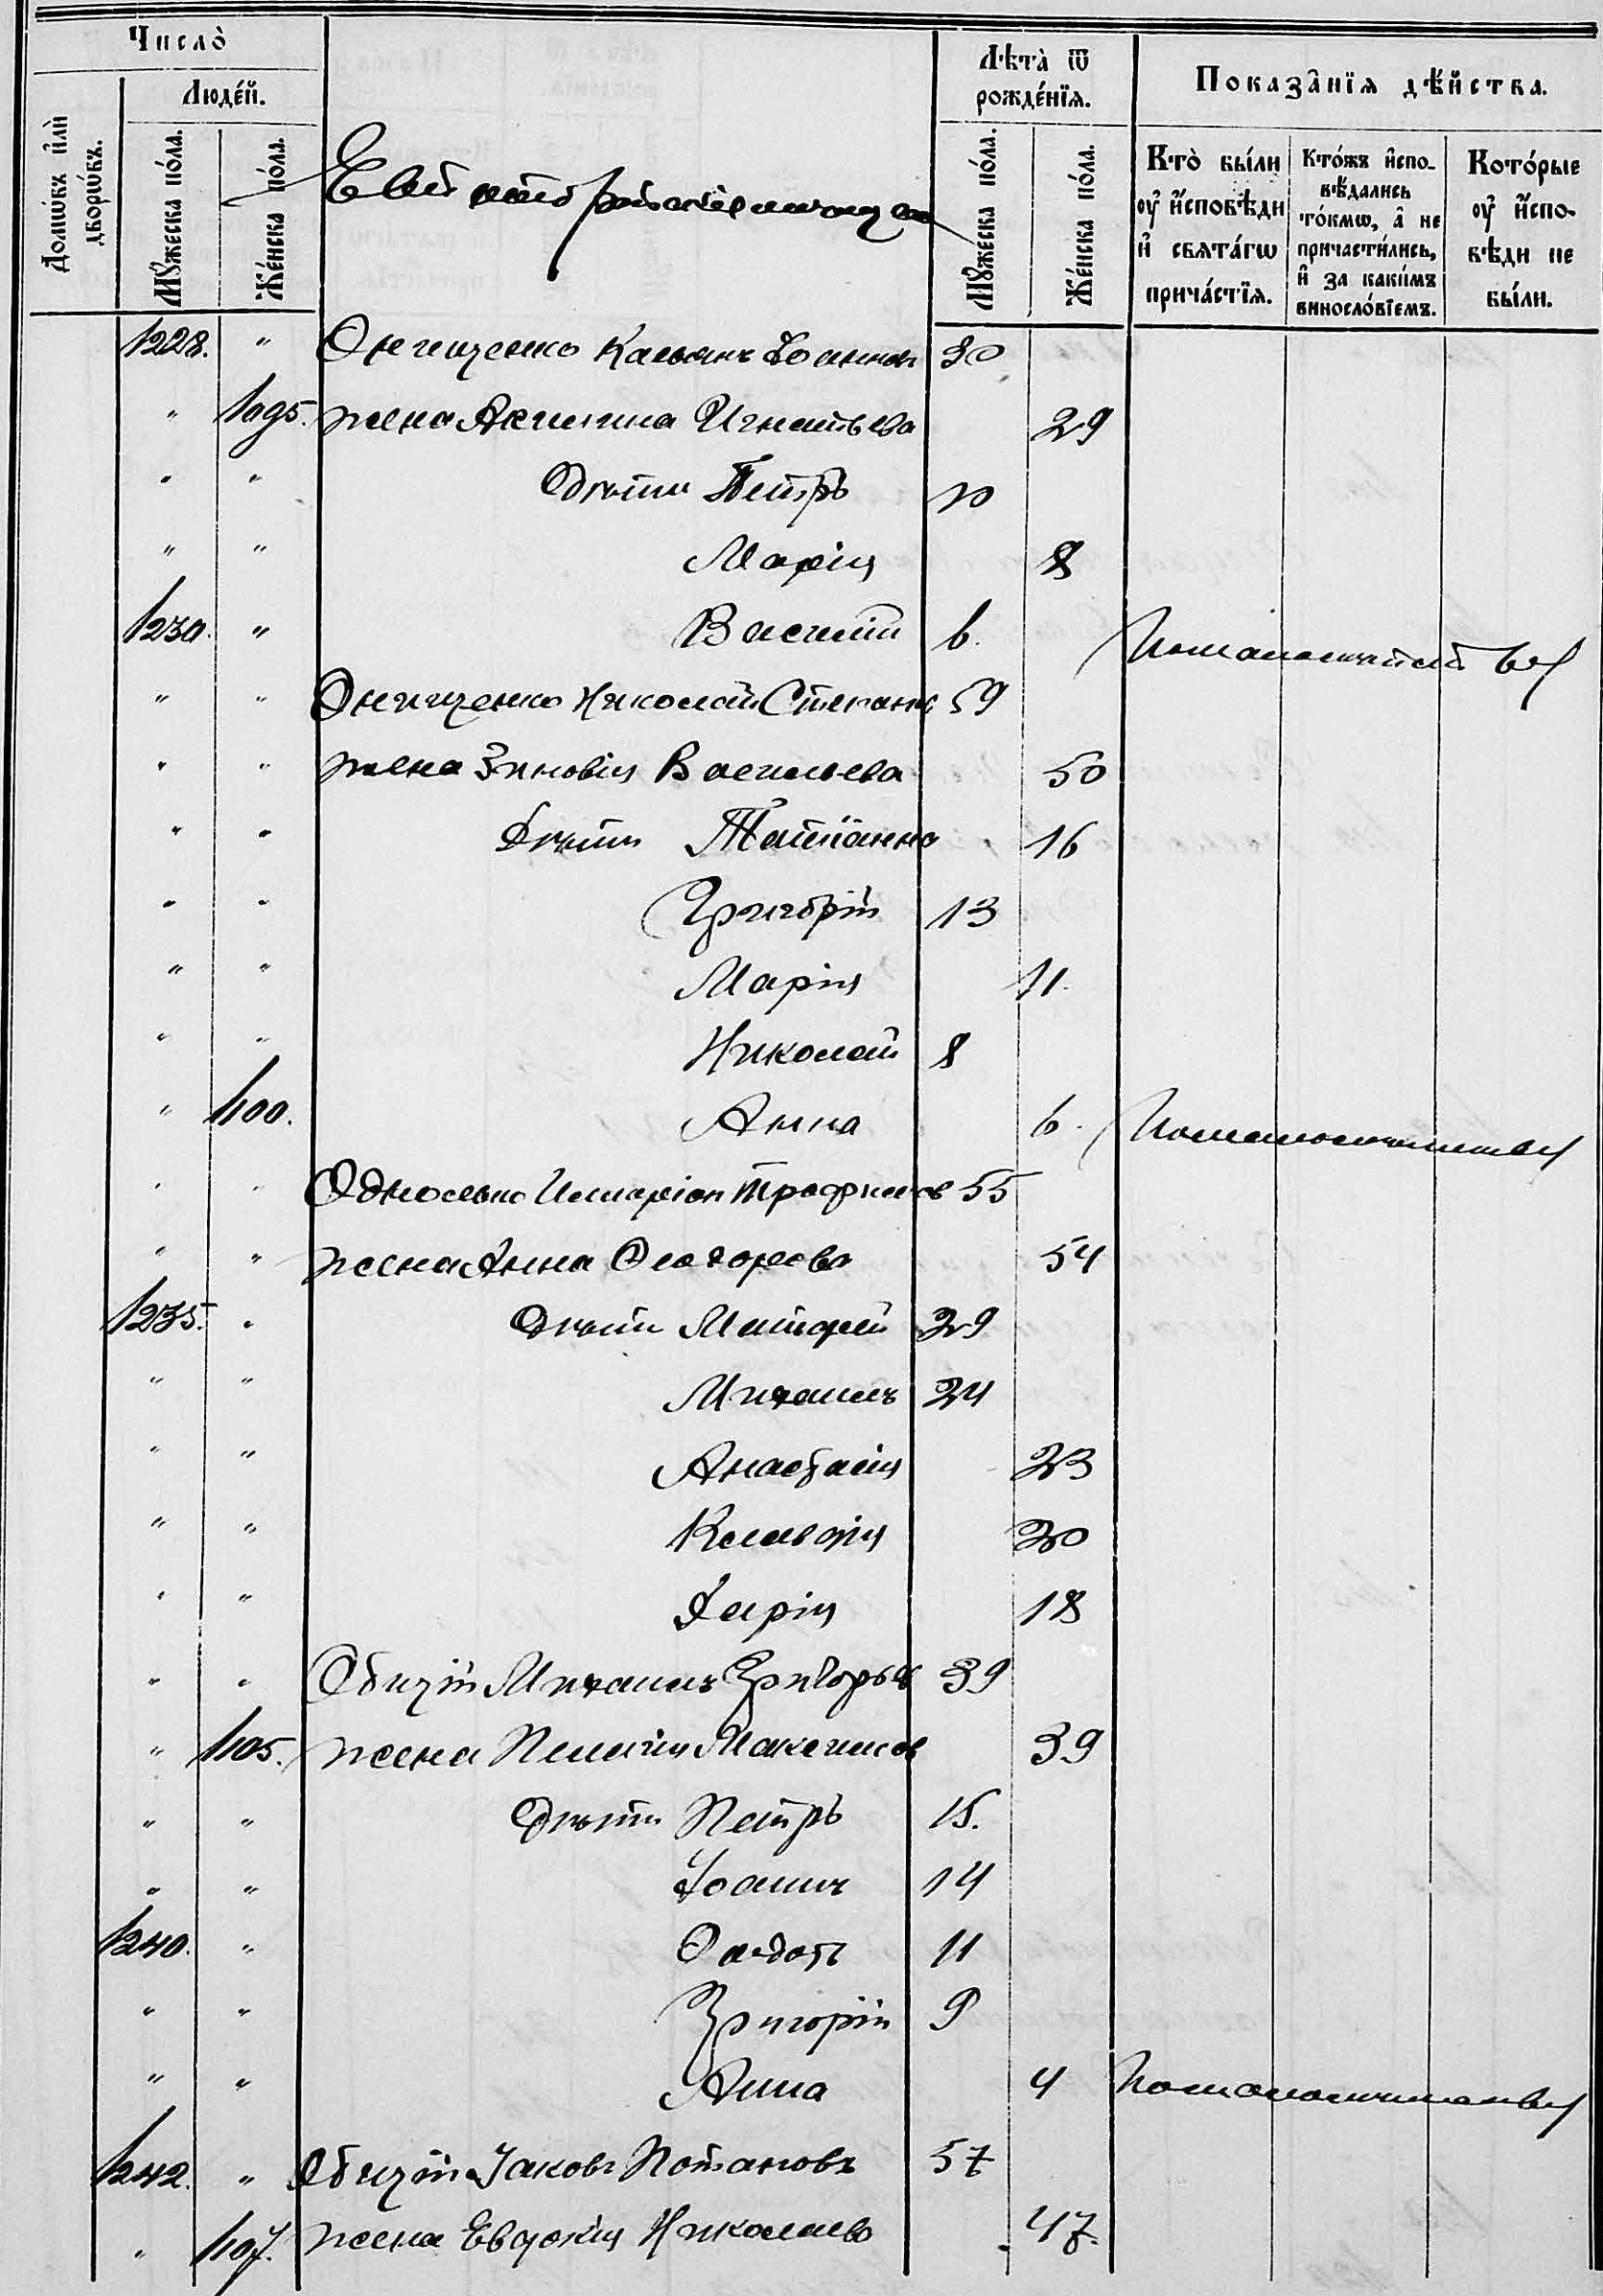 Число̀
Люде́й.
Домѡ́въ и҆лѝ дворѡ́въ.
Мꙋ́жеска по́ла.
Же́нска по́ла.
Лѣ́та ѿ рожде́нїѧ.
Мꙋ́жеска по́ла.
Же́нска по́ла.
Показа̑нїѧ дѣ́йства.
Кто̀ бы́ли оу҆ и҆сповѣ́ди и҆ свѧта́гѡ прича́стїѧ.
Кто́жъ и҆сповѣ́дались то́кмѡ, а҆ не причасти́лись, и҆ за каки́мъ винносло́вїемъ.
Кото́рые оу҆ и҆сповѣ́ди не бы́ли.
1228. " Онищенко Касьянъ Іоанновъ 30
" 1095. жена Акилина Игнатьева 29
" " Дѣти Петръ 10
" " Марія 8
1230. " Василій 6. По малолѣтству
" " Онищенко Николай Степановъ 59
" " жена Зиновія Васильева 50
" " Дѣти Татіанна 16
" " Григорій 13
" " Марія 11.
" " Николай 8
" 1100. Анна 6. По малолѣтству
" " Односько Иларіон Трофимов 55
" " жена Анна Ѳеодорова 54
1235. " Дѣти Матфей 29
" " Михаилъ 24
" " Анастасія 23
" " Клавдія 20
" " Дарія 18
" " Обицій Михаилъ Григорьев 39
" 1105. жена Пелагія Максимов 39
" " Дѣти Петръ 15.
" " Іоаннъ 14
1240. " Ѳеодотъ 11
" " Григорій 9
" " Анна 4 По малолѣтству
1242. " Обицій Іаковъ Потаповъ 57
" 1107. жена Евдокія Николаева 47.